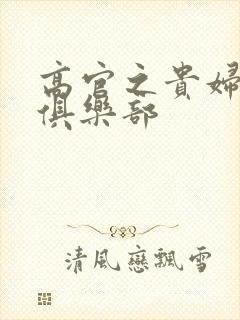 高官之貴婦
俱樂部
清風戀飄雪